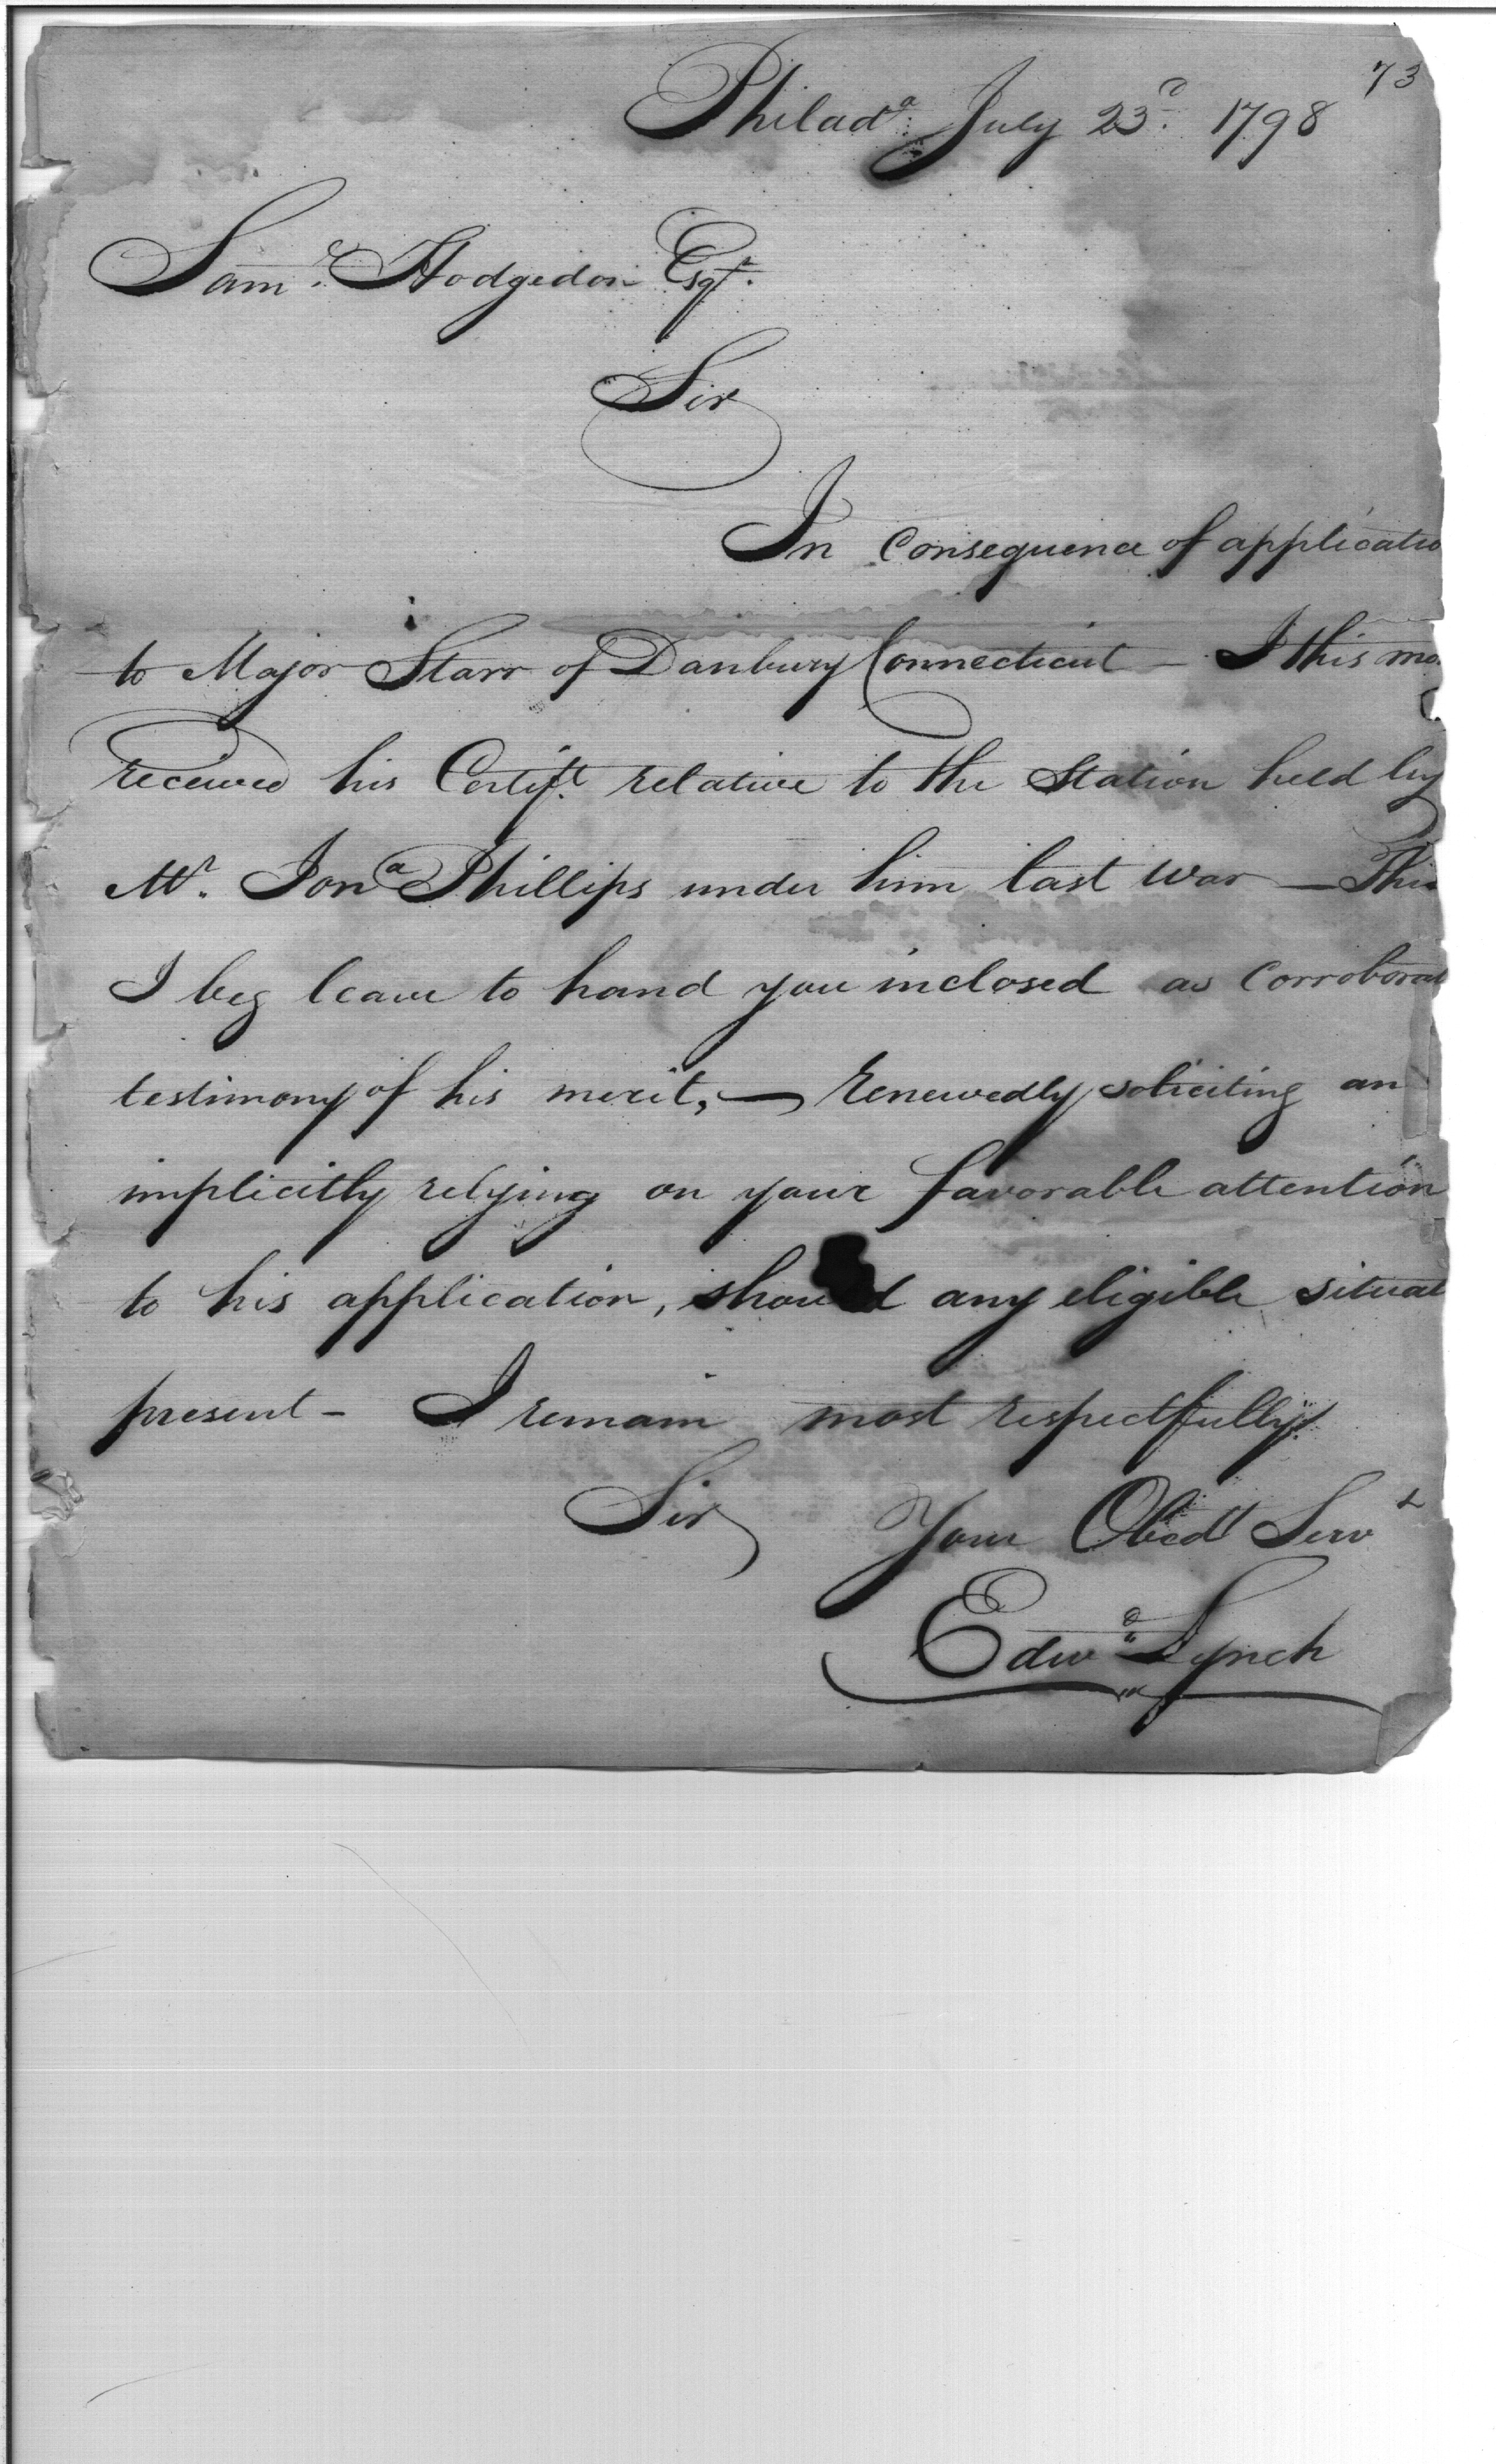 73
Philad.a July 23.d 1798
Sam.l Hodgedon Esqr.
Sir
In Consequence of applicatio
to Major Starr of Danbury Connecticut - I this mo
received his Certift. relative to the Station held by
Mr. Jona Phillips under him last war - This
I beg leave to hand you inclosed as Corroborat
testimony of his merit, - renewedly soliciting an
implicitly relying on your favorable attention
to his application, should any eligible situat
present - I remain most respectfully
Sir Your Obedt Servt
Edwd. Lynch